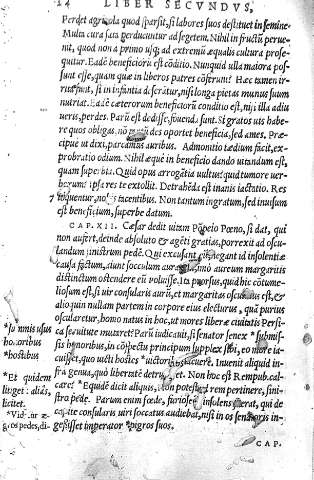 24 LIBER SECVNDVS,
Perdet agricola quod sparsit, si labores suos destituet in semine
Multa cura sata perducuntur ad segetem. Nihil in fructũ perue-
nit, quod non a primo usq; ad extremũ æqualis cultura prose-
quitur. Eadẽ beneficiorũ est cõditio. Nunquid ulla maiora pos-
sunt esse, quam quæ in liberos patres cõferunt? Hæc tamen irri-
ta sunt, si in infantia deserãtur, nisi longa pietas munus suum
nutriat. Eadẽ cæterorum beneficiorũ conditio est, nisi illa adiu
ueris, perdes. Parũ est dedisse, fouenda sunt. Si gratos uis habe-
re quos obligas, nõ des oportet beneficia, sed ames. Præ-
cipue ut dixi, parcamus auribus. Admonitio tædium facit, ex-
probratio odium. Nihil æque in beneficio dando uitandum est,
quam superbia. Quid opus arrogãtia uultus? quid tumore uer-
borum? ipsa res te extollit. Detrahẽda est inanis iactatio. Res
loquentur, nobis tacentibus. Non tantum ingratum, sed inuisum
est beneficium, superbe datum.
CAP. XII. Cæsar dedit uitam Põpeio Pœno, si dat, qui
non aufert, deinde absoluto & agẽti gratias, porrexit ad oscu-
landum sinistrum pedẽ. Qui excusant, & negant id insolentiæ
causa factum, aiunt socculum auratũ, imo aureum margaritis
distinctum ostendere eũ uoluisse. Ita prorsus, quid hic cõtume-
liosum est, si uir consularis aurũ, et margaritas osculatus est, &
alio quin nullam partem in corpore eius electurus, quã purius
oscularetur, homo natus in hoc, ut mores liberæ ciuitatis Persi-
ca seruitute mutaret? Parũ iudicauit, si senator senex *submis-
sis honoribus, in cõspectu principum supplex sibi, eo more ia-
cuisset, quo uicti hostes *uictorib. iacuere. Inuenit aliquid in-
fra genua, quò libertatẽ detruderet. Non hoc est Rempub. cal-
care? *Equidẽ dicit aliquis, non potest ad rem pertinere, sini-
stro pede. Parum enim fœde, furioseque insolens fuerat, qui de
capite consularis uiri soccatus audiebat, nisi in os senatoris in-
gessisset imperator *pigros suos.
*Summis usus
honoribus
*hostibus
*Et quidem
aliàs,
licitet.
pedes, di-
CAP.